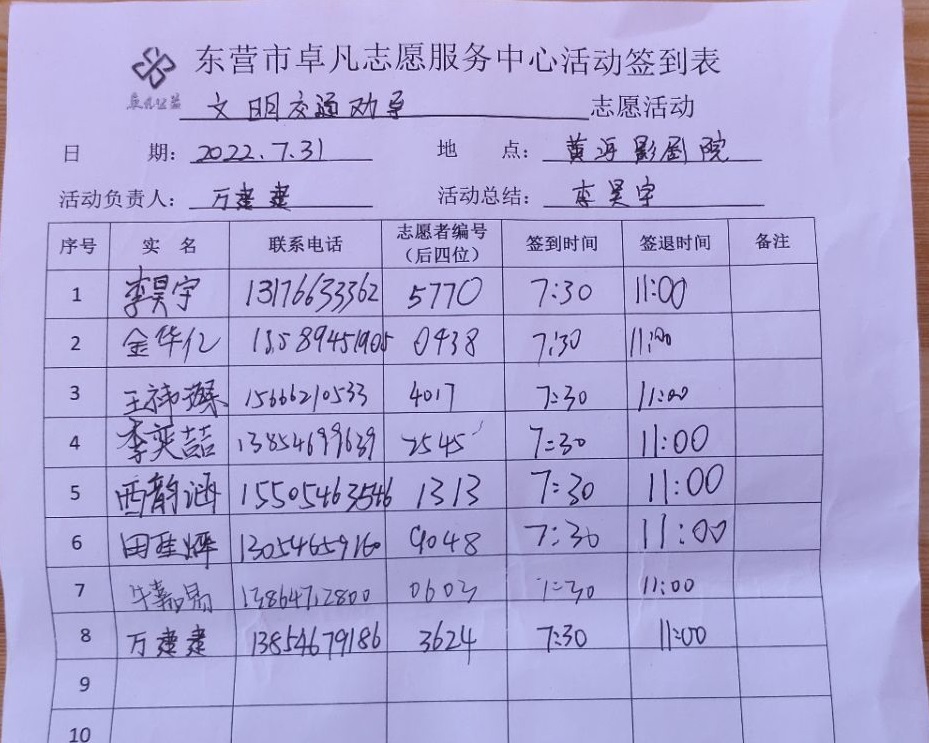 东营市卓凡志愿服务中心活动签到表
卓凡公益
文明交通劝导 志愿活动
日 期：2022.7.31 地 点：黄河影剧院
活动负责人：万建建 活动总结：李昊宇
序号 实 名 联系电话 志愿者编号（后四位） 签到时间 签退时间 备注
1 李昊宇 13176633362 5770 7:30 11:00
2 金华亿 13589451905 0438 7:30 11:00
3 王祎璨 15666210533 4017 7:30 11:00
4 李奕喆 13854699639 2545 7:30 11:00
5 西韵涵 15505463546 1313 7:30 11:00
6 田 13054659160 9048 7:30 11:00
7 牛嘉 13864712800 0603 7:30 11:00
8 万建建 13854679186 3624 7:30 11:00
9
10